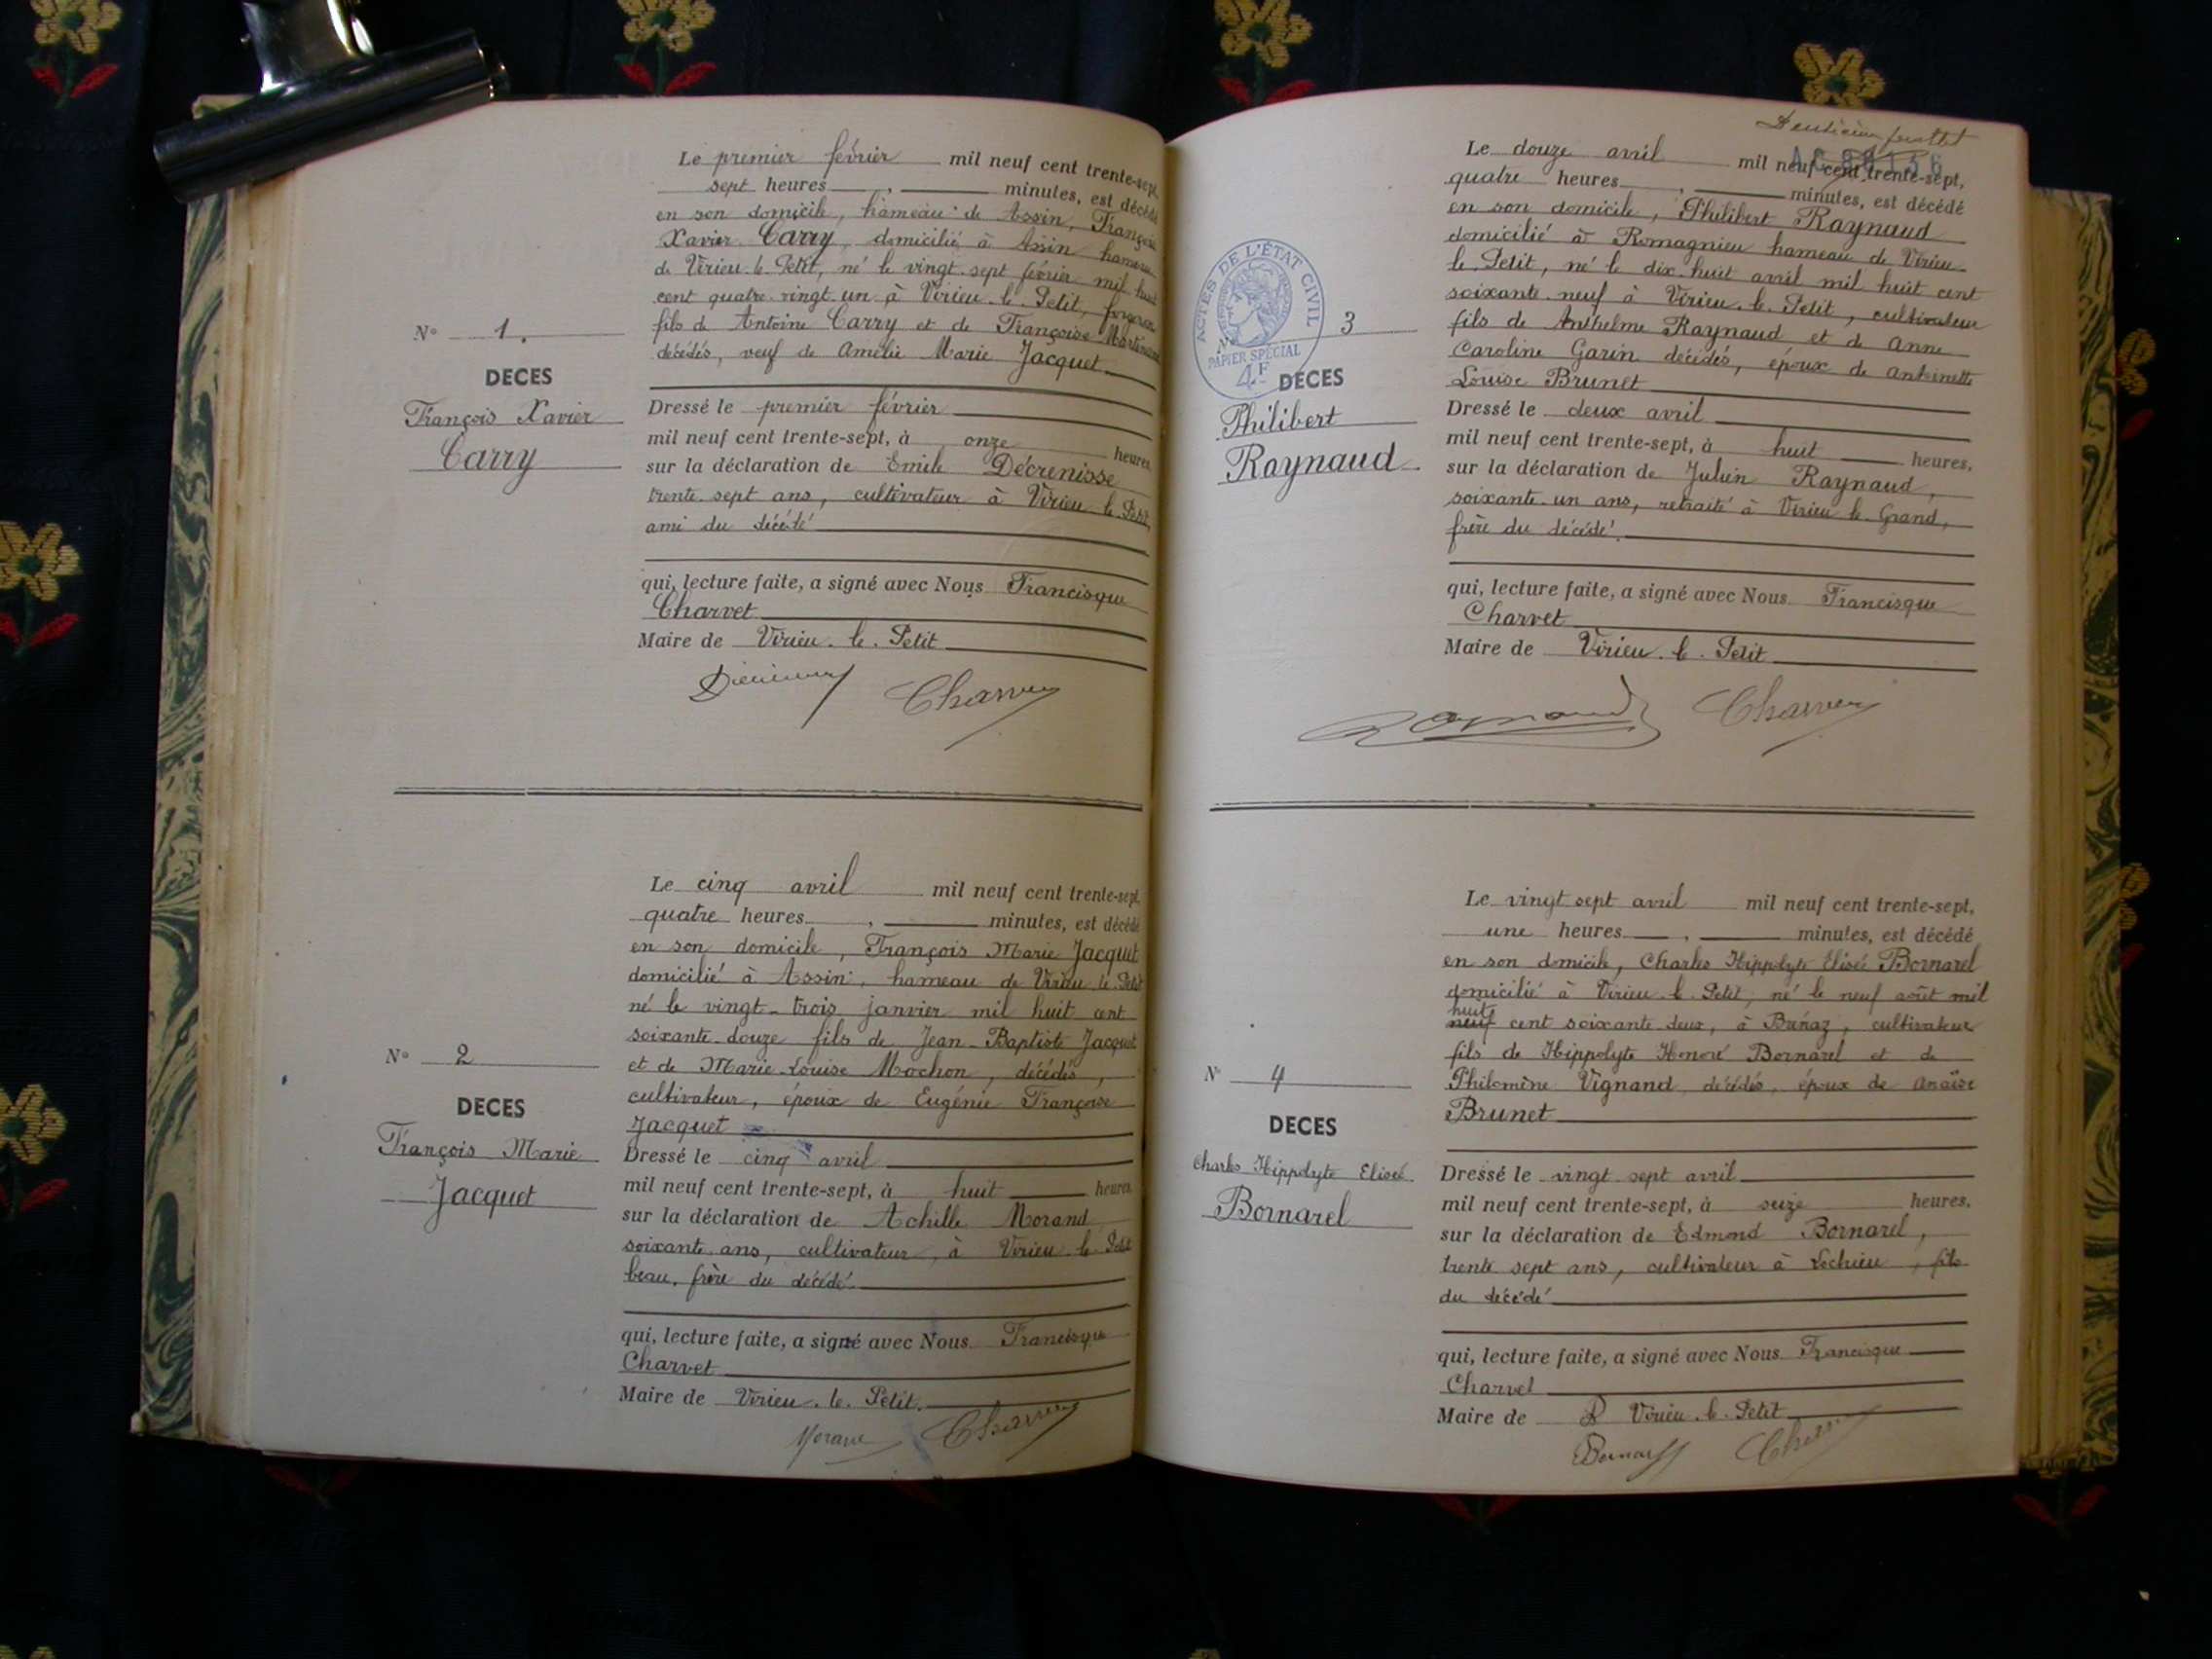 Le premier février mil neuf cent trente-sept,
sept heures, minutes, est décédé
en son domicile, hameau de Assin, François
Xavier Carry, domicilié à Assin hameau
de Virieu-le-Petit, né le vingt-sept février mil huit
cent quatre-vingt-un à Virieu-le-Petit, forgeron
fils de Antoine Carry et de Françoise
décédés, veuf de Amélie Marie Jacquet
N° 1.
DECES
François Xavier
Carry
Dressé le premier février
mil neuf cent trente-sept, à onze heures,
sur la déclaration de Emile Décrenisse
trente-sept ans, cultivateur à Virieu-le-Petit,
ami du décédé
qui, lecture faite, a signé avec Nous Francisque
Charvet
Maire de Virieu-le-Petit
Charvet
Le cinq avril mil neuf cent trente-sept,
quatre heures, minutes, est décédé
en son domicile, François Marie Jacquet
domicilié à Assin, hameau de Virieu-le-Petit
né le vingt-trois janvier mil huit cent
soixante-douze fils de Jean-Baptiste Jacquet
et de Marie-Louise Mochon, décédés,
cultivateur, époux de Eugénie Françoise
Jacquet
N° 2
DECES
François Marie
Jacquet
Dressé le cinq avril
mil neuf cent trente-sept, à huit heures,
sur la déclaration de Achille Morand
soixante ans, cultivateur, à Virieu-le-Petit
beau-frère du décédé
qui, lecture faite, a signé avec Nous Francisque
Charvet
Maire de Virieu-le-Petit.
Morand Charvet
Le douze avril mil neuf cent trente-sept,
quatre heures, minutes, est décédé
en son domicile, Philibert Raynaud
domicilié à Romagnieu hameau de Virieu-
le-Petit, né le dix-huit avril mil huit cent
soixante-neuf à Virieu-le-Petit, cultivateur
fils de Anthelme Raynaud et de Anne
Caroline Garin décédés, époux de Antoinette
Louise Brunet
ACTES DE L'ÉTAT CIVIL
PAPIER SPÉCIAL
4F
3
DECES
Philibert
Raynaud
Dressé le deux avril
mil neuf cent trente-sept, à huit heures,
sur la déclaration de Julien Raynaud,
soixante-un ans, retraité à Virieu-le-Grand,
frère du décédé.
qui, lecture faite, a signé avec Nous Francisque
Charvet
Maire de Virieu-le-Petit
Raynaud Charvet
Le vingt-sept avril mil neuf cent trente-sept,
une heures, minutes, est décédé
en son domicile, Charles Hippolyte Elisée Bornarel
domicilié à Virieu-le-Petit, né le neuf août mil
huit
neuf cent soixante-deux, à Brénaz, cultivateur
fils de Hippolyte Honoré Bornarel et de
Philomène Vignand, décédés, époux de Anaïse
Brunet
N° 4
DECES
Charles Hippolyte Elisée
Bornarel
Dressé le vingt-sept avril
mil neuf cent trente-sept, à seize heures,
sur la déclaration de Edmond Bornarel,
trente-sept ans, cultivateur à Lochieu, fils
du décédé
qui, lecture faite, a signé avec Nous Francisque
Charvet
Maire de Virieu-le-Petit
Charvet